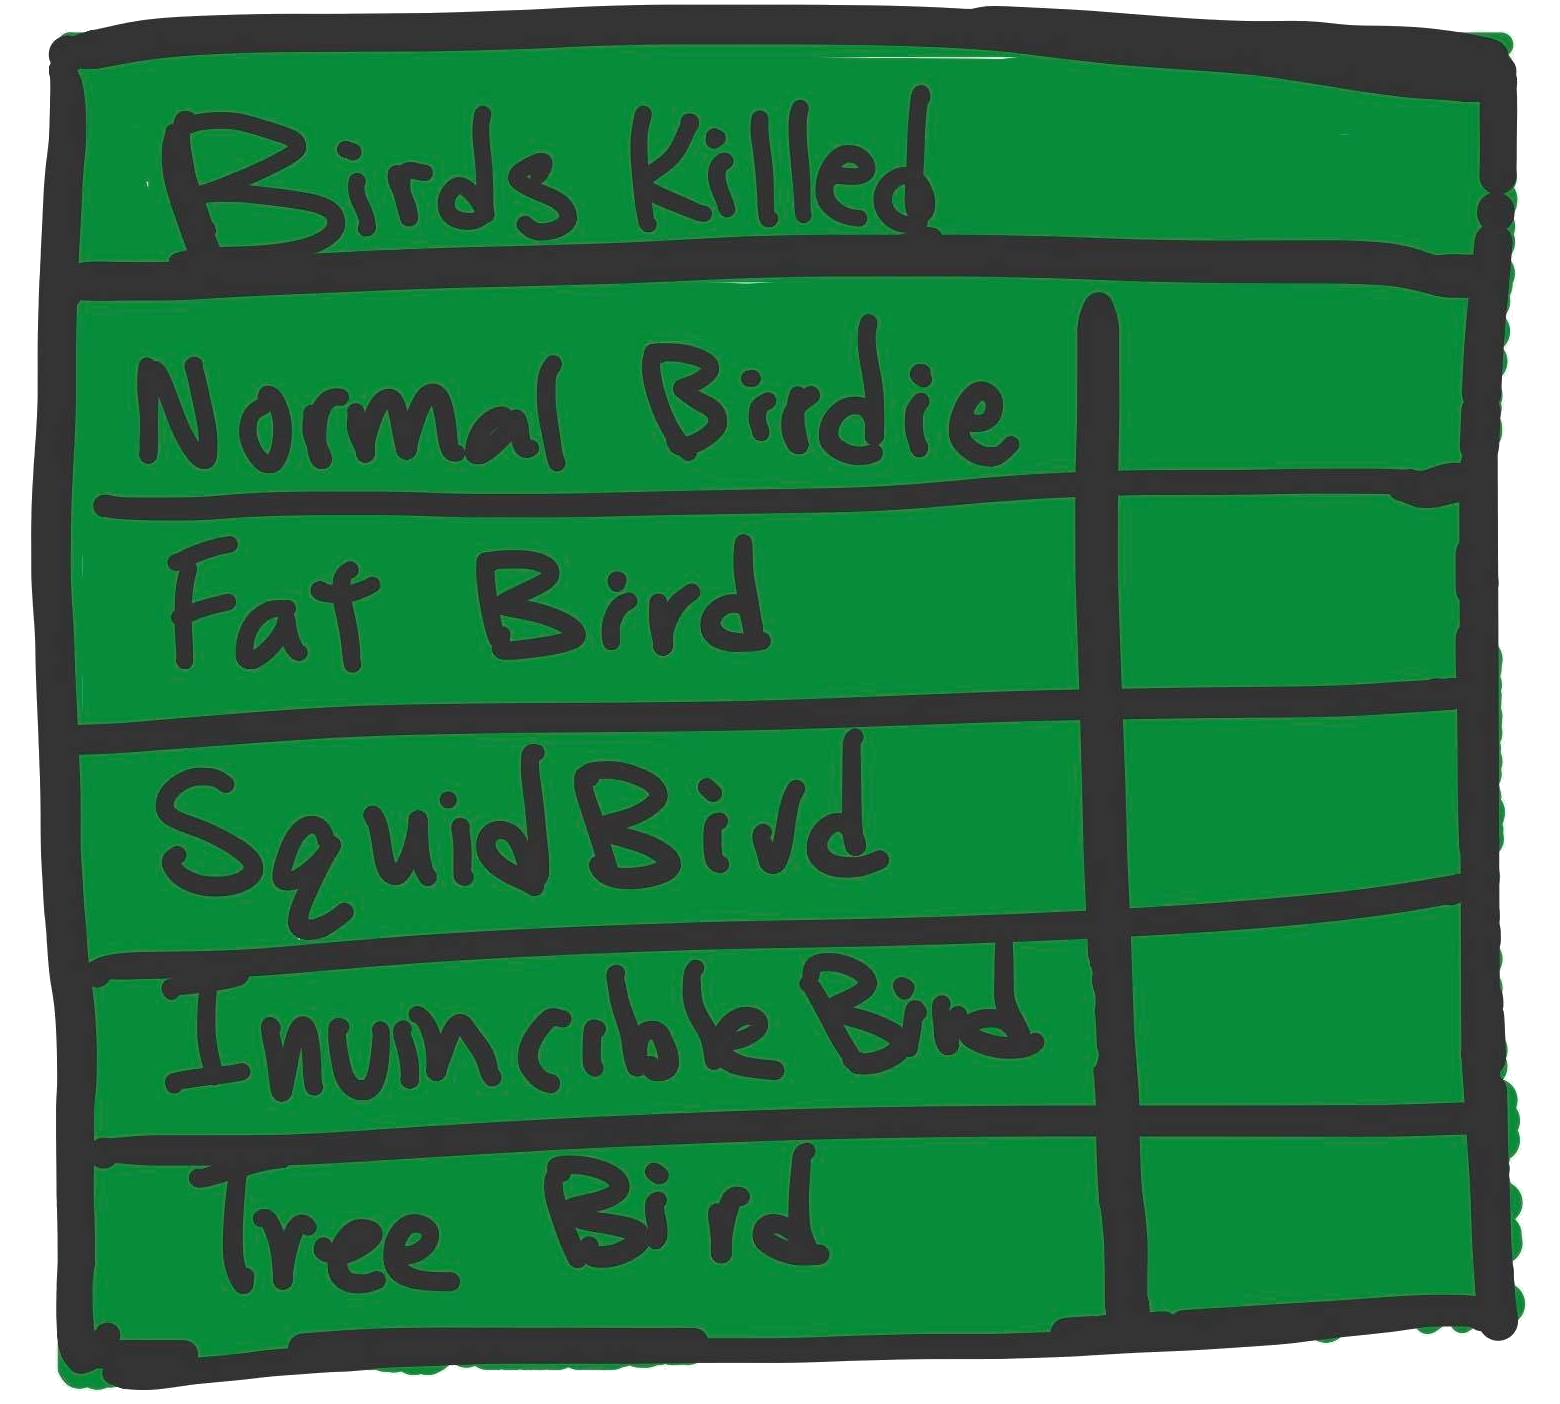 Birds Killed
Normal Birdie
Fat Bird
Squid Bird
Invincible Bird
Tree Bird